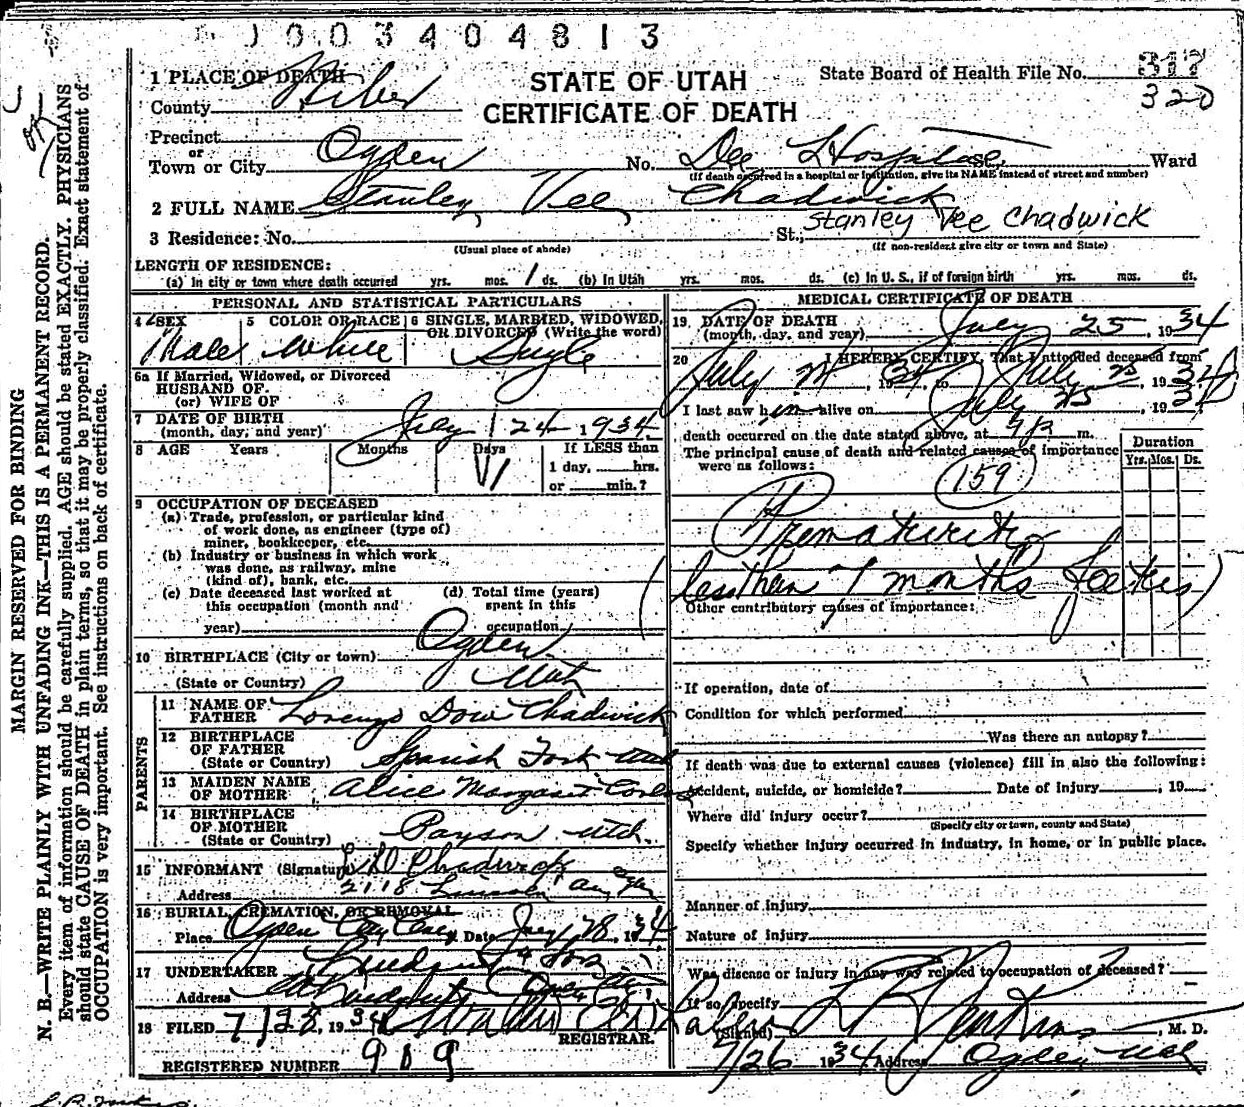 003404813
1 PLACE OF DEATH
STATE OF UTAH
CERTIFICATE OF DEATH
State Board of Health File No. 317
320
County Weber
Precinct
or
Town or City Ogden No. Dee Hospital St. Ward
(If death occurred in a hospital or institution, give its NAME instead of street and number)
2 FULL NAME Stanley Vee Chadwick
Stanley Vee Chadwick
3 Residence: No. St.,
(Usual place of abode) (If non-resident give city or town and State)
LENGTH OF RESIDENCE:
(a) In city or town where death occurred yrs. mos. 1 ds. (b) In Utah yrs. mos. ds. (c) In U. S., if of foreign birth yrs. mos. ds.
PERSONAL AND STATISTICAL PARTICULARS
4 SEX 5 COLOR OR RACE 6 SINGLE, MARRIED, WIDOWED, OR DIVORCED (Write the word)
Male White Single
6a If Married, Widowed, or Divorced
HUSBAND OF
(or) WIFE OF
7 DATE OF BIRTH
(month, day, and year) July 24 1934
8 AGE Years Months Days If LESS than
1 1 day, hrs.
or min.?
9 OCCUPATION OF DECEASED
(a) Trade, profession, or particular kind
of work done, as engineer (type of)
miner, bookkeeper, etc.
(b) Industry or business in which work
was done, as railway, mine
(kind of), bank, etc.
(c) Date deceased last worked at (d) Total time (years)
this occupation (month and spent in this
year) occupation
10 BIRTHPLACE (City or town) Ogden
(State or Country) Utah
PARENTS
11 NAME OF
FATHER Lorenzo Dow Chadwick
12 BIRTHPLACE
OF FATHER
(State or Country) Spanish Fork Utah
13 MAIDEN NAME
OF MOTHER Alice Margaret
14 BIRTHPLACE
OF MOTHER
(State or Country) Payson Utah
15 INFORMANT (Signature) L D Chadwick
Address 2118 Lincoln Ave Ogden
16 BURIAL, CREMATION, OR REMOVAL
Place Ogden City Date July 28, 1934
17 UNDERTAKER Lindquist & Sons
Address Ogden
18 FILED 7/28, 1934
REGISTRAR.
REGISTERED NUMBER 909
MEDICAL CERTIFICATE OF DEATH
19. DATE OF DEATH
(month, day, and year) July 25, 1934
20 I HEREBY CERTIFY, That I attended deceased from
July 24, 1934 to July 25, 1934
I last saw him alive on July 25, 1934
death occurred on the date stated above, at m.
The principal cause of death and related causes of importance
were as follows:
Duration
Yrs. Mos. Ds.
159
Prematurity
(less than 7 months foetus)
Other contributory causes of importance:
If operation, date of
Condition for which performed
Was there an autopsy?
If death was due to external causes (violence) fill in also the following:
Accident, suicide, or homicide? Date of Injury , 19
Where did injury occur?
(Specify city or town, county and State)
Specify whether injury occurred in industry, in home, or in public place.
Manner of injury
Nature of injury
Was disease or injury in any way related to occupation of deceased?
If so, specify
(Signed) Jenkins, M. D.
7/26 1934 Address Ogden Utah
MARGIN RESERVED FOR BINDING
N. B.—WRITE PLAINLY WITH UNFADING INK—THIS IS A PERMANENT RECORD.
Every item of information should be carefully supplied. AGE should be stated EXACTLY. PHYSICIANS
should state CAUSE OF DEATH in plain terms, so that it may be properly classified. Exact statement of
OCCUPATION is very important. See instructions on back of certificate.